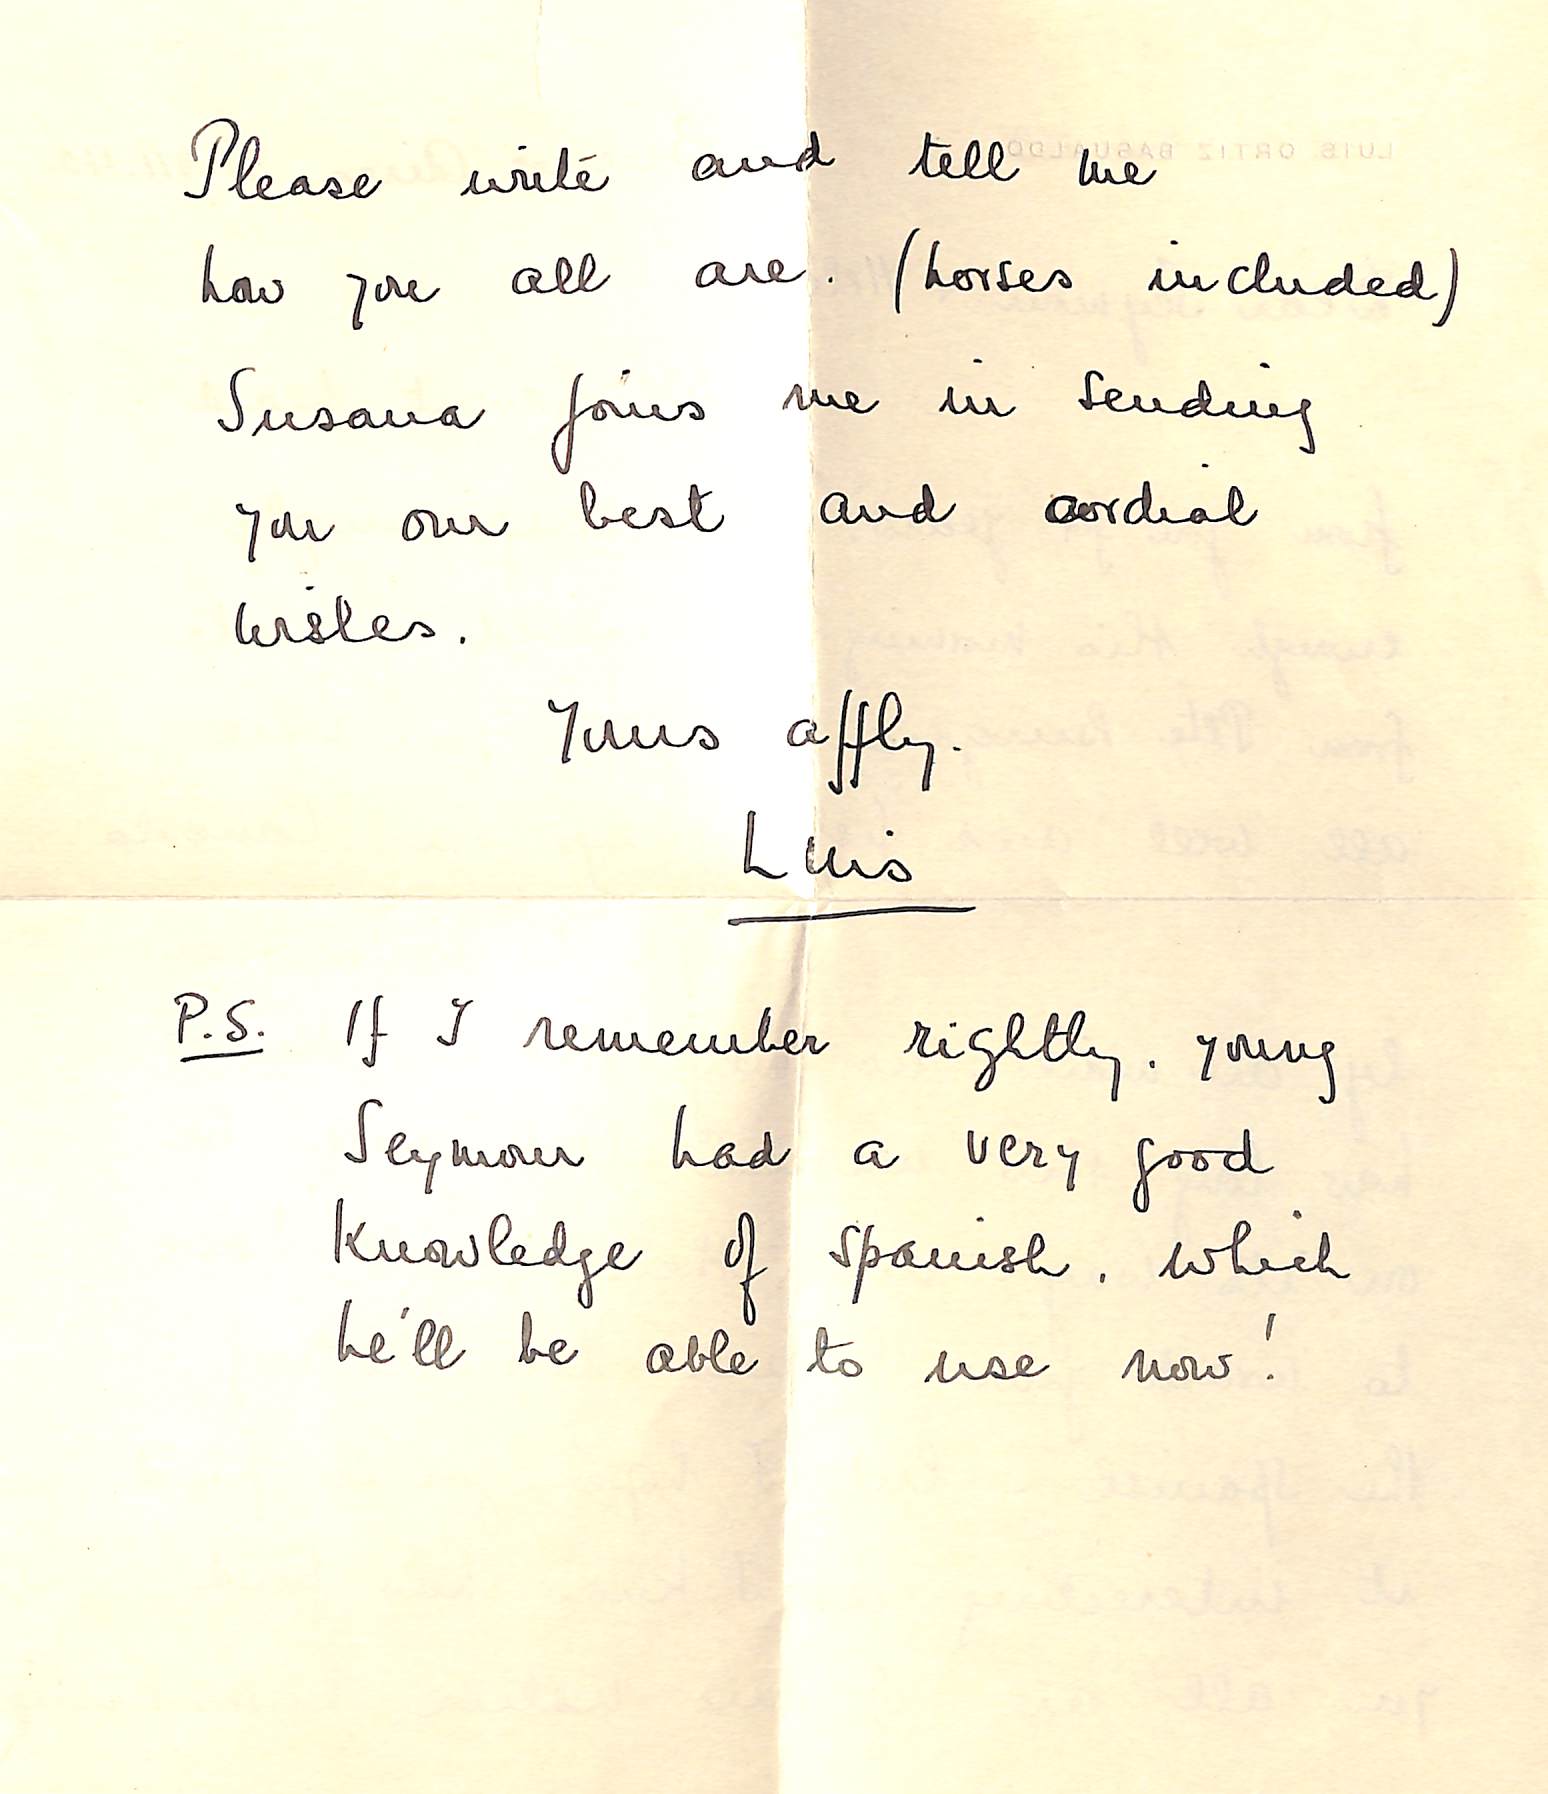 Please write and tell me
how you all are. (horses included)
Susana joins me in sending
you our best and cordial
wishes.
Yours affly.
Luis
P.S. If I remember rightly, young
Seymour had a very good
knowledge of Spanish, which
he'll be able to use now!
LUIS ORTIZ BASUALDO